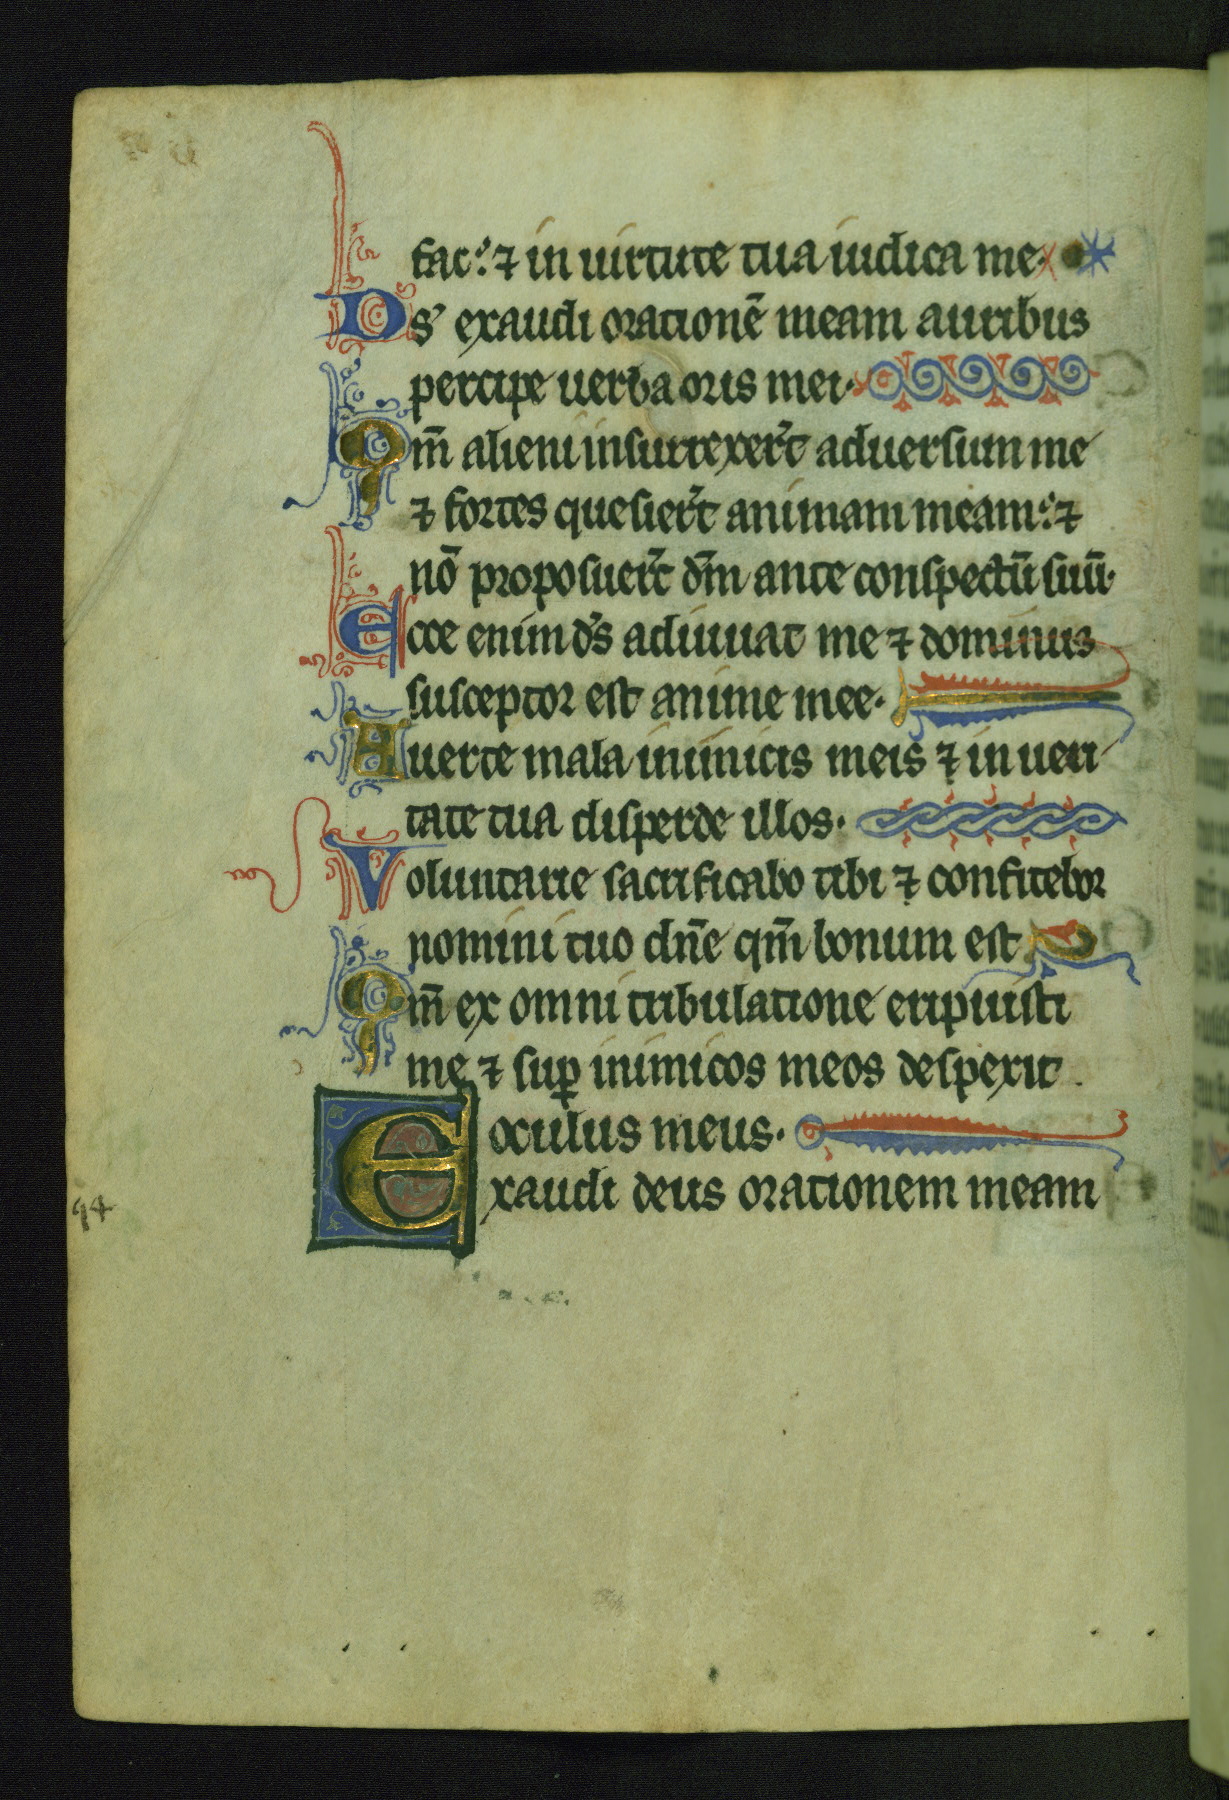 fac: ⁊ in uirtute tua iudica me.
Ds exaudi orationē meam auribus
percipe uerba oris mei.
Qm̄ alieni insurrexer̄t aduersum me
⁊ fortes quesier̄t animam meam: ⁊
nō proposuer̄t dm̄ ante conspectū suū.
Ecce enim ds̄ adiuuat me ⁊ dominus
susceptor est anime mee.
Auerte mala inimicis meis ⁊ in ueri
tate tua disperde illos.
Voluntarie sacrificabo tibi ⁊ confitebor
nomini tuo dn̄e qm̄ bonum est
Qm̄ ex omni tribulatione eripuisti
me ⁊ sup̱ inimicos meos despexit
oculus meus.
Exaudi deus orationem meam